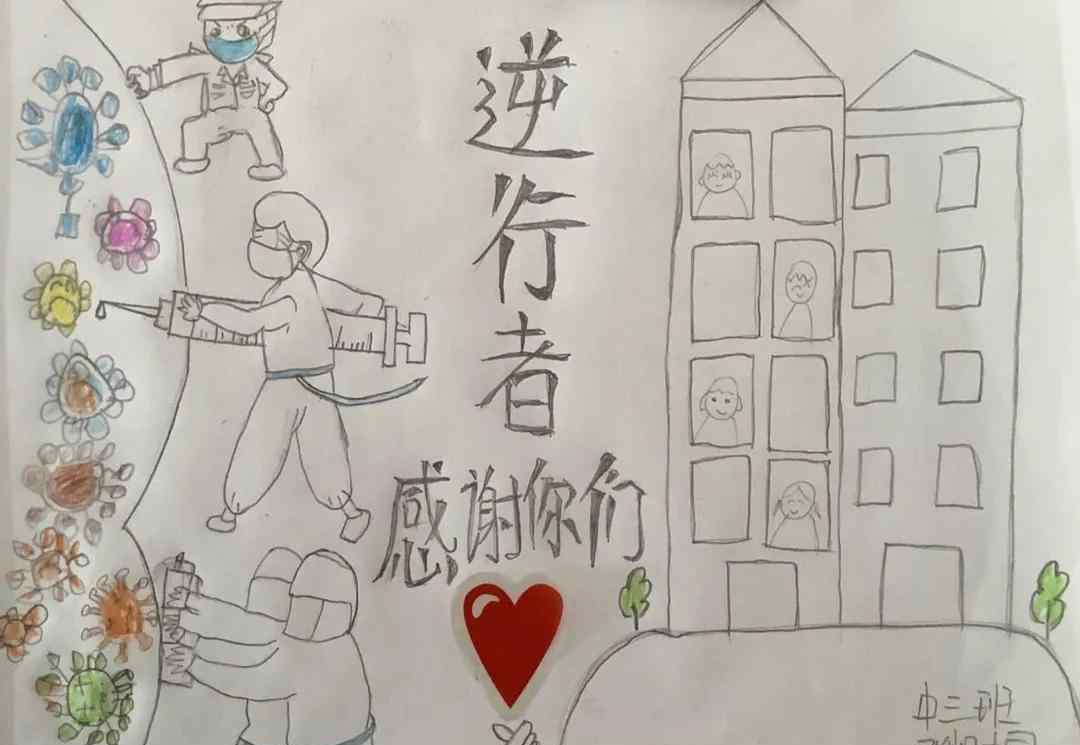 逆行者
感谢你们
中三班